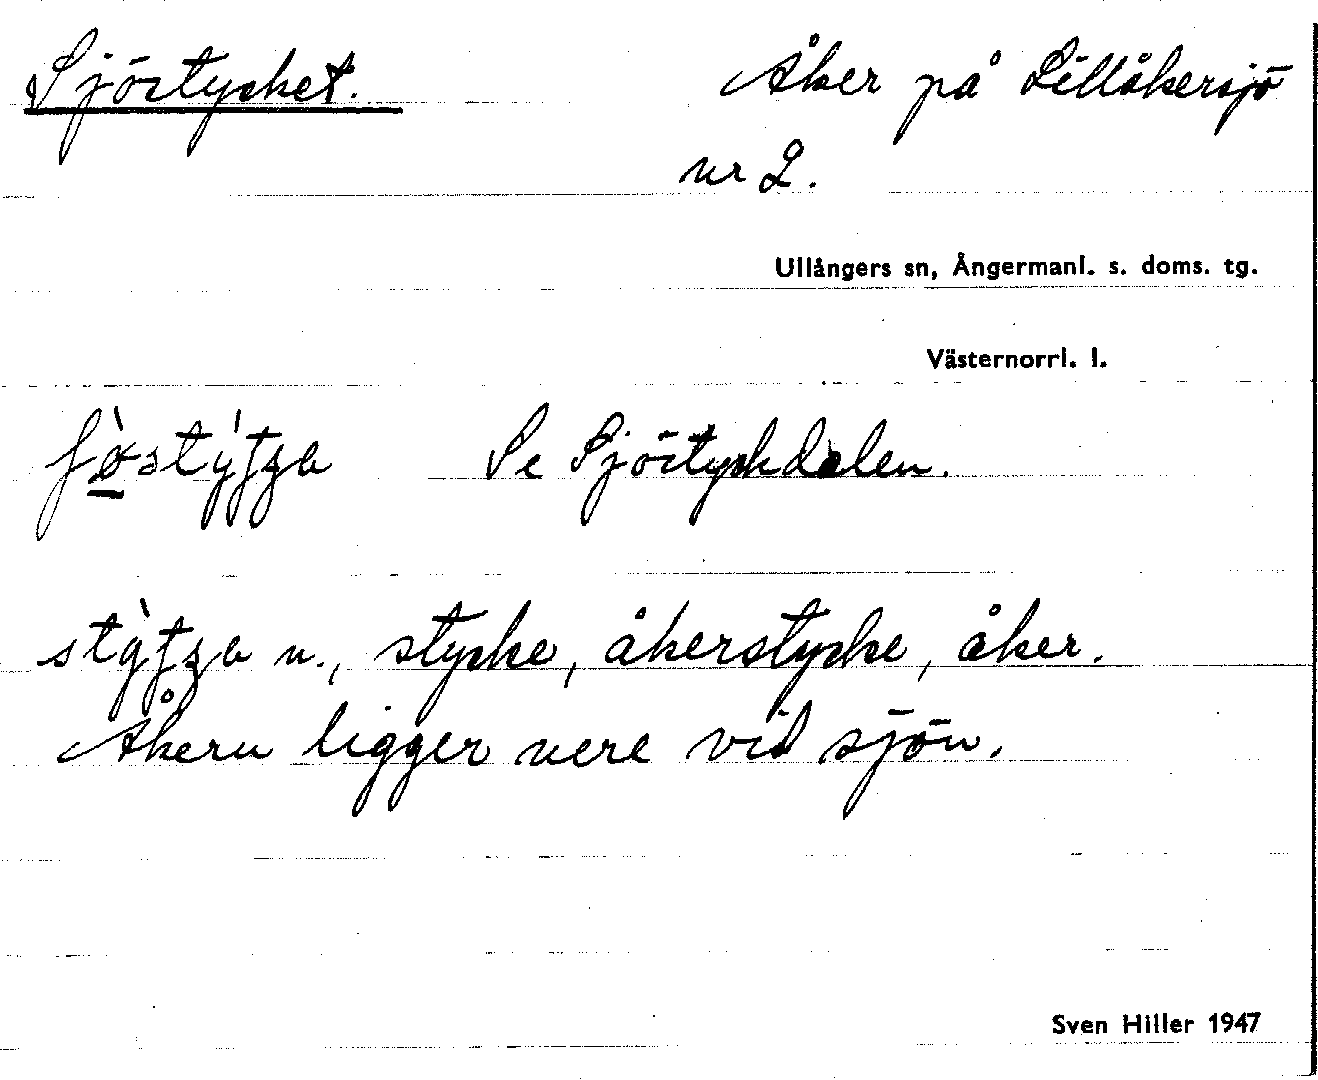 Sjöstycket. Åker på Lillåkersjö
nr 2.
Ullångers sn, Ångermanl. s. doms. tg.
Västernorrl. l.
Se Sjöstyckdalen.
n., stycke, åkerstycke, åker.
Åkern ligger nere vid sjön.
Sven Hiller 1947